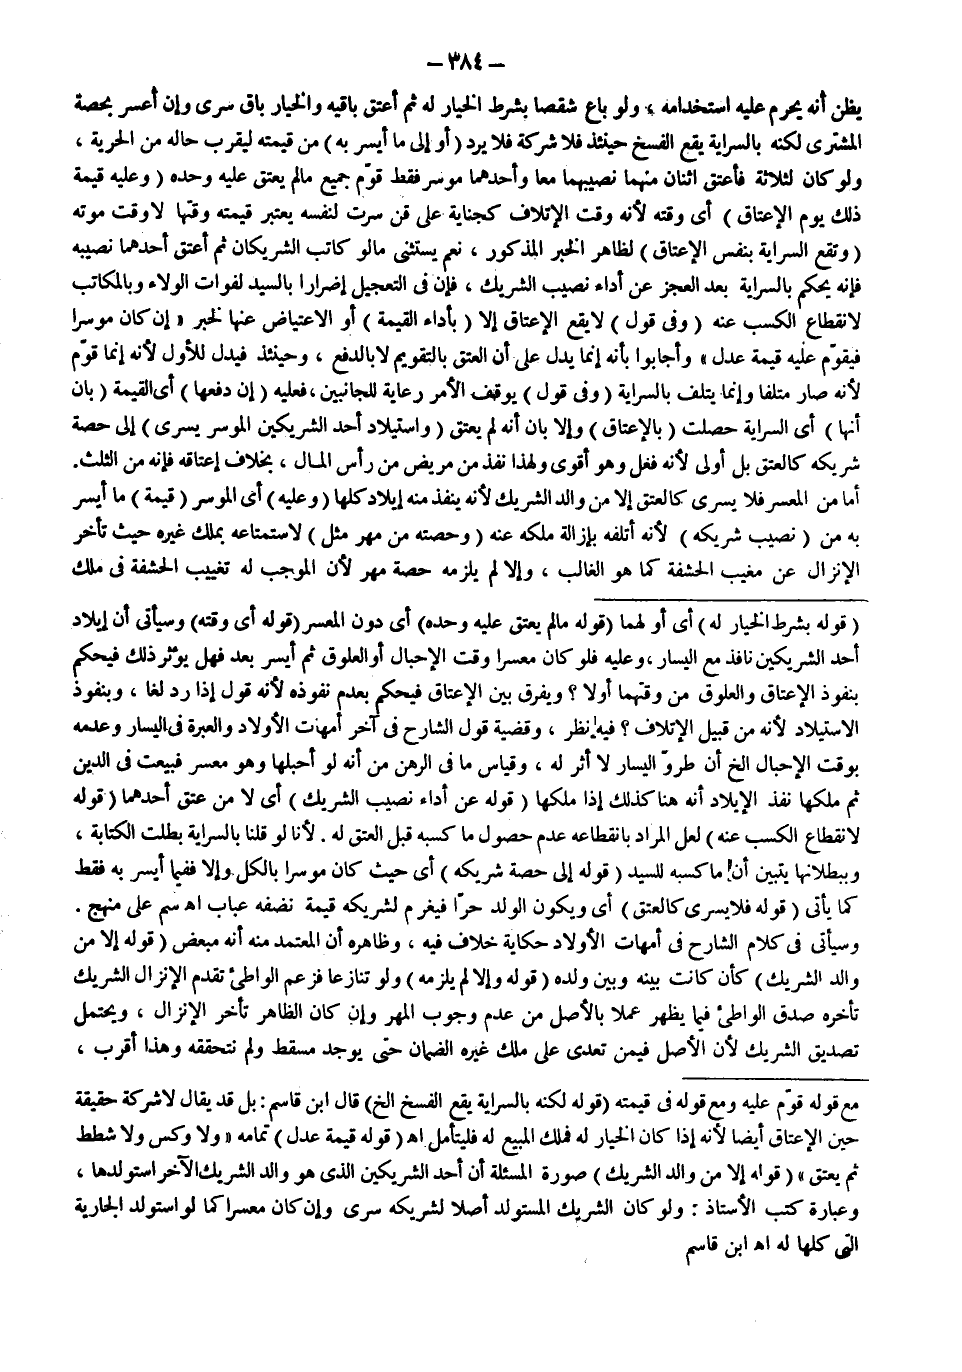 – ٣٨٤ –
يظن أنه يحرم عليه استخدامه ، ولو باع شقصا بشرط الخيار له ثم أعتق باقيه والخيار باق سرى وإن أعسر بحصة
المشترى لكنه بالسراية يقع الفسخ حينئذ فلا شركة فلا يرد ( أو إلى ما أيسر به ) من قيمته ليقرب حاله من الحرية ،
ولو كان لثلاثة فأعتق اثنان منهما نصيبهما معا وأحدهما موسر فقط قوّم جميع مالم يعتق عليه وحده ( وعليه قيمة
ذلك يوم الإعتاق ) أى وقته لأنه وقت الإتلاف كجناية على قن سرت لنفسه يعتبر قيمته وقتها لاوقت موته
( وتقع السراية بنفس الإعتاق ) لظاهر الخبر المذكور ، نعم يستثنى مالو كاتب الشريكان ثم أعتق أحدهما نصيبه
فإنه يحكم بالسراية بعد العجز عن أداء نصيب الشريك ، فإن فى التعجيل إضرارا بالسيد لفوات الولاء وبالمكاتب
لانقطاع الكسب عنه ( وفى قول ) لايقع الإعتاق إلا ( بأداء القيمة ) أو الاعتياض عنها لخبر « إن كان موسرا
فيقوّم عليه قيمة عدل » وأجابوا بأنه إنما يدل على أن العتق بالتقويم لابالدفع ، وحينئذ فيدل للأول لأنه إنما قوّم
لأنه صار متلفا وإنما يتلف بالسراية ( وفى قول ) يوقف الأمر رعاية للجانبين ، فعليه ( إن دفعها ) أى القيمة ( بان
أنها ) أى السراية حصلت ( بالإعتاق ) وإلا بان أنه لم يعتق ( واستيلاد أحد الشريكين الموسر يسرى ) إلى حصة
شريكه كالعتق بل أولى لأنه فعل وهو أقوى ولهذا نفذ من مريض من رأس المال ، بخلاف إعتاقه فإنه من الثلث.
أما من المعسر فلا يسرى كالعتق إلا من والد الشريك لأنه ينفذ منه إيلاد كلها ( وعليه ) أى الموسر ( قيمة ) ما أيسر
به من ( نصيب شريكه ) لأنه أتلفه بإزالة ملكه عنه ( وحصته من مهر مثل ) لاستمتاعه بملك غيره حيث تأخر
الإنزال عن مغيب الحشفة كما هو الغالب ، وإلا لم يلزمه حصة مهر لأن الموجب له تغييب الحشفة فى ملك
( قوله بشرط الخيار له ) أى أو لهما (قوله مالم يعتق عليه وحده) أى دون المعسر (قوله أى وقته) وسيأتى أن إيلاد
أحد الشريكين نافذ مع اليسار ، وعليه فلو كان معسرا وقت الإحبال أو العلوق ثم أيسر بعد فهل يؤثر ذلك فيحكم
بنفوذ الإعتاق والعلوق من وقتهما أولا ؟ ويفرق بين الإعتاق فيحكم بعدم نفوذه لأنه قول إذا رد لغا ، وبنفوذ
الاستيلاد لأنه من قبيل الإتلاف ؟ فيه نظر ، وقضية قول الشارح فى آخر أمهات الأولاد والعبرة فى اليسار وعدمه
بوقت الإحبال الخ أن طروّ اليسار لا أثر له ، وقياس ما فى الرهن من أنه لو أحبلها وهو معسر فبيعت فى الدين
ثم ملكها نفذ الإيلاد أنه هنا كذلك إذا ملكها ( قوله عن أداء نصيب الشريك ) أى لا من عتق أحدهما ( قوله
لانقطاع الكسب عنه ) لعل المراد بانقطاعه عدم حصول ما كسبه قبل العتق له . لأنا لو قلنا بالسراية بطلت الكتابة ،
وببطلانها يتبين أن ما كسبه للسيد ( قوله إلى حصة شريكه ) أى حيث كان موسرا بالكل وإلا ففيما أيسر به فقط
كما يأتى ( قوله فلا يسرى كالعتق ) أى ويكون الولد حرّا فيغرم لشريكه قيمة نضفه عباب اه سم على منهج .
وسيأتى فى كلام الشارح فى أمهات الأولاد حكاية خلاف فيه ، وظاهره أن المعتمد منه أنه مبعض ( قوله إلا من
والد الشريك ) كأن كانت بينه وبين ولده ( قوله وإلا لم يلزمه ) ولو تنازعا فزعم الواطئ تقدم الإنزال الشريك
تأخره صدق الواطئ فيما يظهر عملا بالأصل من عدم وجوب المهر وإن كان الظاهر تأخر الإنزال ، ويحتمل
تصديق الشريك لأن الأصل فيمن تعدى على ملك غيره الضمان حتى يوجد مسقط ولم نتحققه وهذا أقرب ،
مع قوله قوّم عليه ومع قوله فى قيمته (قوله لكنه بالسراية يقع الفسخ الخ) قال ابن قاسم : بل قد يقال لا شركة حقيقة
حين الإعتاق أيضا لأنه إذا كان الخيار له فملك المبيع له فليتأمل اه ( قوله قيمة عدل ) تمامه « ولا وكس ولا شطط
ثم يعتق » ( قوله إلا من والد الشريك ) صورة المسئلة أن أحد الشريكين الذى هو والد الشريك الآخر استولدها ،
وعبارة كتب الأستاذ : ولو كان الشريك المستولد أصلا لشريكه سرى وإن كان معسرا كما لو استولد الجارية
التى كلها له اه ابن قاسم